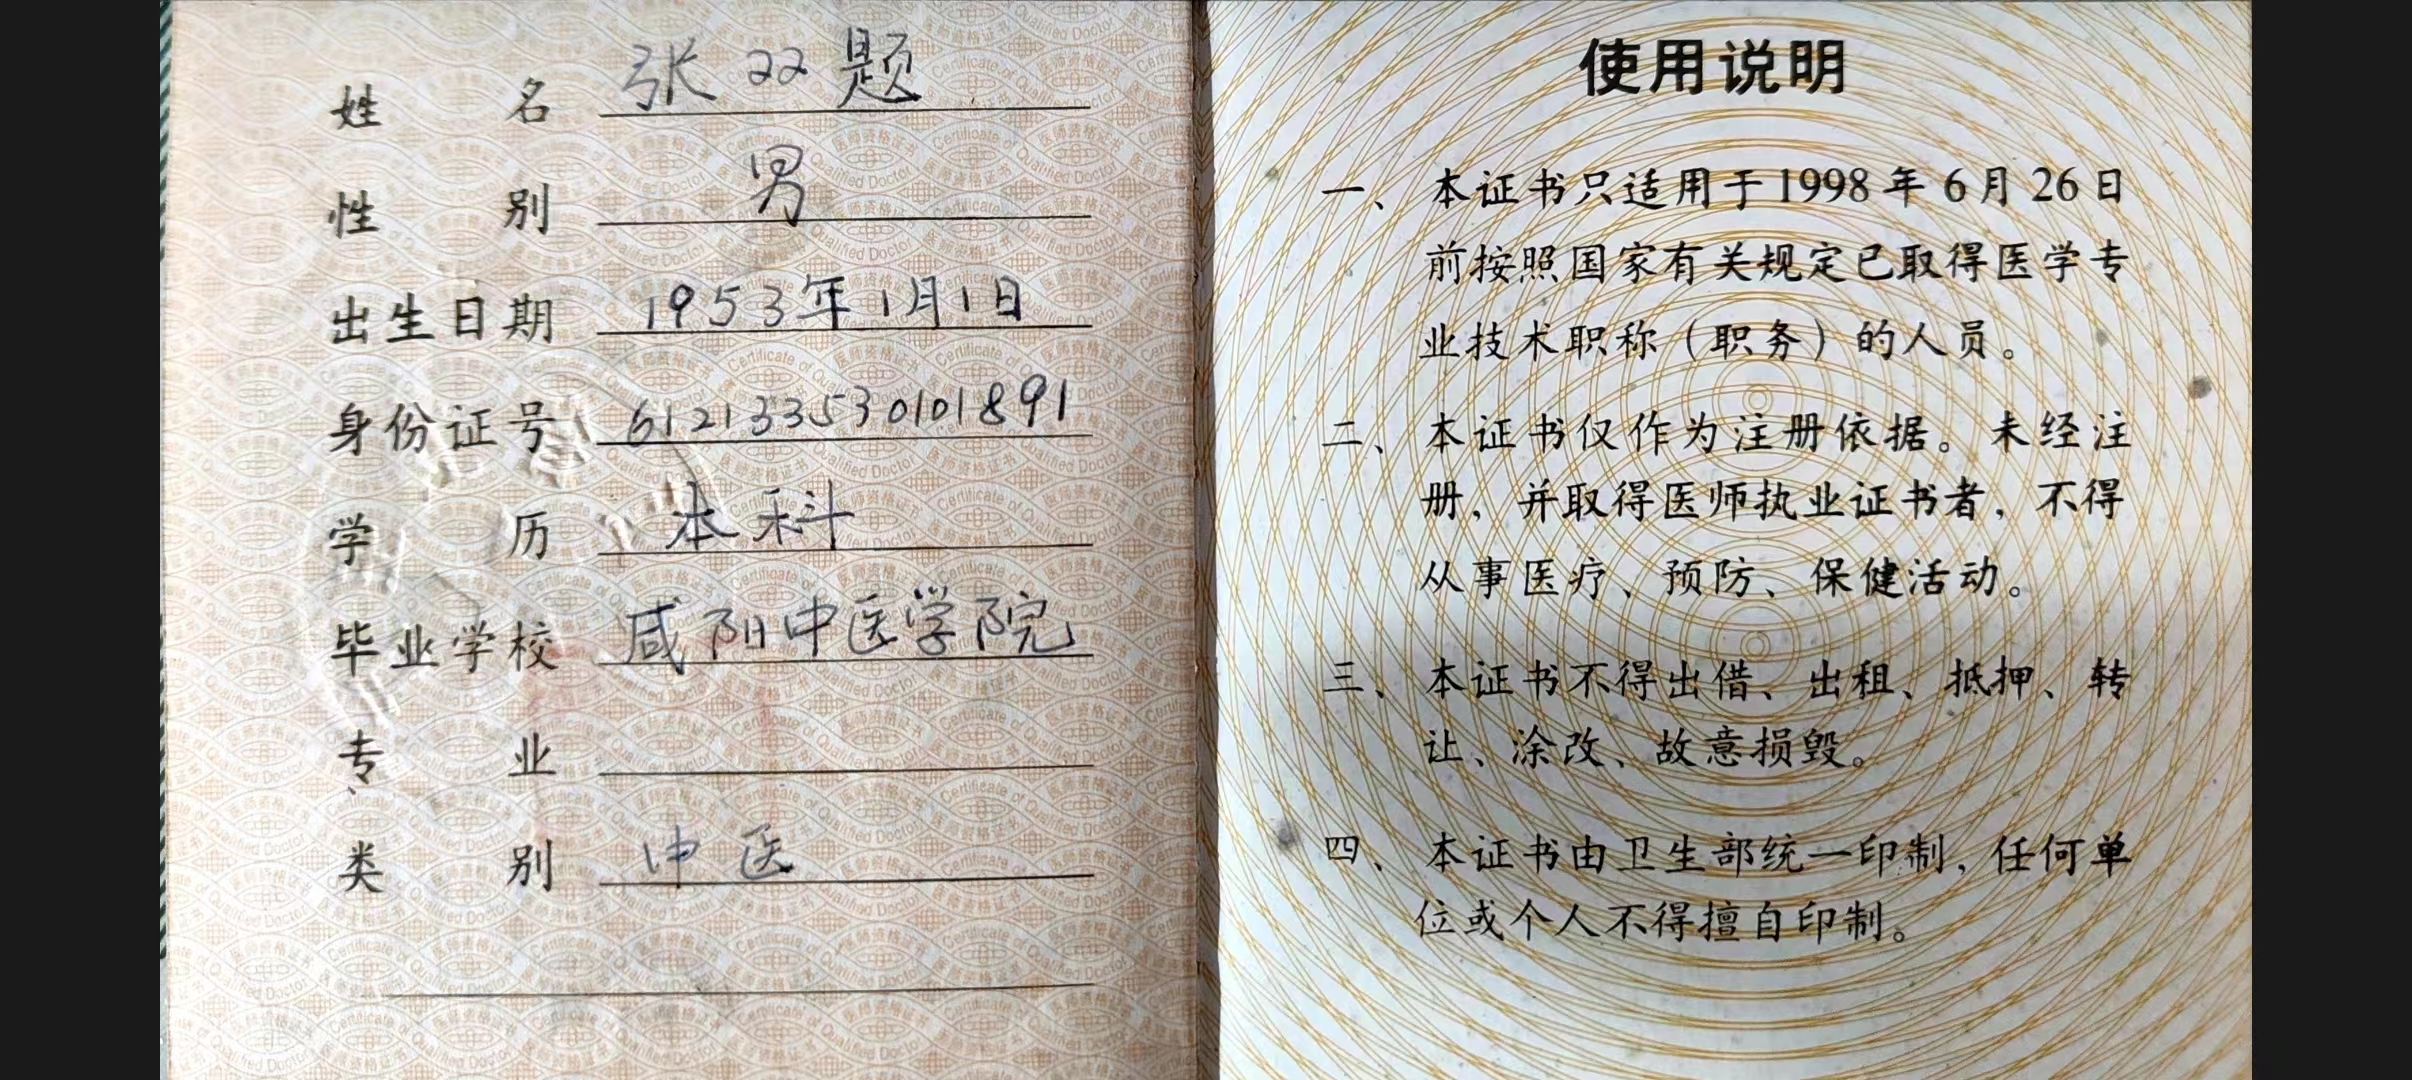 姓名 张22题
性别 男
出生日期 1953年1月1日
身份证号 612133530101891
学历 本科
毕业学校 咸阳中医学院
专业
类别 中医
使用说明
一、本证书只适用于1998年6月26日
前按照国家有关规定已取得医学专
业技术职称（职务）的人员。
二、本证书仅作为注册依据。未经注
册，并取得医师执业证书者，不得
从事医疗、预防、保健活动。
三、本证书不得出借、出租、抵押、转
让、涂改、故意损毁。
四、本证书由卫生部统一印制，任何单
位或个人不得擅自印制。